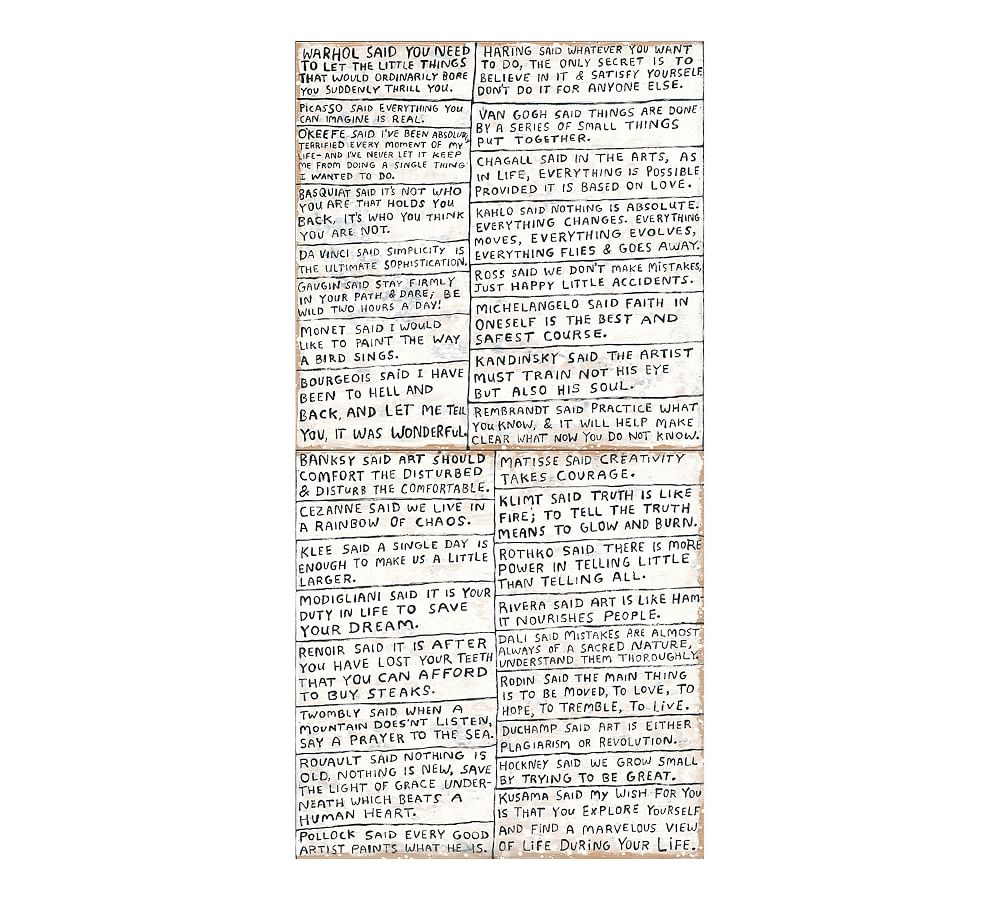 WARHOL SAID YOU NEED
TO LET THE LITTLE THINGS
THAT WOULD ORDINARILY BORE
YOU SUDDENLY THRILL YOU.
PICASSO SAID EVERYTHING YOU
CAN IMAGINE IS REAL.
O'KEEFE SAID I'VE BEEN ABSOLUTELY
TERRIFIED EVERY MOMENT OF MY
LIFE- AND I'VE NEVER LET IT KEEP
ME FROM DOING A SINGLE THING
I WANTED TO DO.
BASQUIAT SAID IT'S NOT WHO
YOU ARE THAT HOLDS YOU
BACK, IT'S WHO YOU THINK
YOU ARE NOT.
DA VINCI SAID SIMPLICITY IS
THE ULTIMATE SOPHISTICATION.
GAUGIN SAID STAY FIRMLY
IN YOUR PATH & DARE; BE
WILD TWO HOURS A DAY!
MONET SAID I WOULD
LIKE TO PAINT THE WAY
A BIRD SINGS.
BOURGEOIS SAID I HAVE
BEEN TO HELL AND
BACK, AND LET ME TELL
YOU, IT WAS WONDERFUL.
HARING SAID WHATEVER YOU WANT
TO DO, THE ONLY SECRET IS TO
BELIEVE IN IT & SATISFY YOURSELF.
DON'T DO IT FOR ANYONE ELSE.
VAN GOGH SAID THINGS ARE DONE
BY A SERIES OF SMALL THINGS
PUT TOGETHER.
CHAGALL SAID IN THE ARTS, AS
IN LIFE, EVERYTHING IS POSSIBLE
PROVIDED IT IS BASED ON LOVE.
KAHLO SAID NOTHING IS ABSOLUTE.
EVERYTHING CHANGES. EVERYTHING
MOVES, EVERYTHING EVOLVES,
EVERYTHING FLIES & GOES AWAY.
ROSS SAID WE DON'T MAKE MISTAKES,
JUST HAPPY LITTLE ACCIDENTS.
MICHELANGELO SAID FAITH IN
ONESELF IS THE BEST AND
SAFEST COURSE.
KANDINSKY SAID THE ARTIST
MUST TRAIN NOT HIS EYE
BUT ALSO HIS SOUL.
REMBRANDT SAID PRACTICE WHAT
YOU KNOW, & IT WILL HELP MAKE
CLEAR WHAT NOW YOU DO NOT KNOW.
BANKSY SAID ART SHOULD
COMFORT THE DISTURBED
& DISTURB THE COMFORTABLE.
CEZANNE SAID WE LIVE IN
A RAINBOW OF CHAOS.
KLEE SAID A SINGLE DAY IS
ENOUGH TO MAKE US A LITTLE
LARGER.
MODIGLIANI SAID IT IS YOUR
DUTY IN LIFE TO SAVE
YOUR DREAM.
RENOIR SAID IT IS AFTER
YOU HAVE LOST YOUR TEETH
THAT YOU CAN AFFORD
TO BUY STEAKS.
TWOMBLY SAID WHEN A
MOUNTAIN DOES'NT LISTEN,
SAY A PRAYER TO THE SEA.
ROUAULT SAID NOTHING IS
OLD, NOTHING IS NEW, SAVE
THE LIGHT OF GRACE UNDER-
NEATH WHICH BEATS A
HUMAN HEART.
POLLOCK SAID EVERY GOOD
ARTIST PAINTS WHAT HE IS.
MATISSE SAID CREATIVITY
TAKES COURAGE.
KLIMT SAID TRUTH IS LIKE
FIRE; TO TELL THE TRUTH
MEANS TO GLOW AND BURN.
ROTHKO SAID THERE IS MORE
POWER IN TELLING LITTLE
THAN TELLING ALL.
RIVERA SAID ART IS LIKE HAM-
IT NOURISHES PEOPLE.
DALI SAID MISTAKES ARE ALMOST
ALWAYS OF A SACRED NATURE,
UNDERSTAND THEM THOROUGHLY.
RODIN SAID THE MAIN THING
IS TO BE MOVED, TO LOVE, TO
HOPE, TO TREMBLE, TO LIVE.
DUCHAMP SAID ART IS EITHER
PLAGIARISM OR REVOLUTION.
HOCKNEY SAID WE GROW SMALL
BY TRYING TO BE GREAT.
KUSAMA SAID MY WISH FOR YOU
IS THAT YOU EXPLORE YOURSELF
AND FIND A MARVELOUS VIEW
OF LIFE DURING YOUR LIFE.